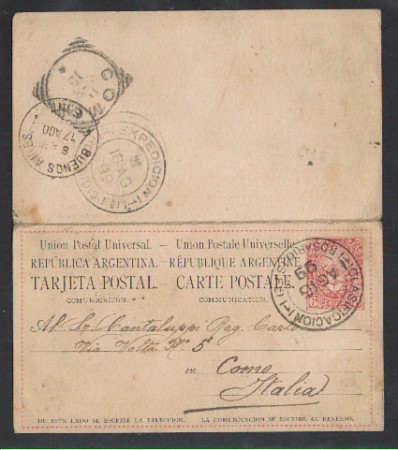 COMO
BUENOS AIRES
6 A.M.
17 AGO
EXPEDICION
16 AG
99
Union Postal Universal. — Union Postale Universelle
REPÚBLICA ARGENTINA. RÉPUBLIQUE ARGENTINE
TARJETA POSTAL. — CARTE POSTALE.
COMUNICACION. COMMUNICATION.
CLASIFICACION
15 AG
99
Al Sr. Cantaluppi Rag. Carlo
Via Volta Nº. 5
en Como
Italia
DE ESTE LADO SE ESCRIBE LA DIRECCION. LA COMUNICACION SE ESCRIBE AL REVERSO.